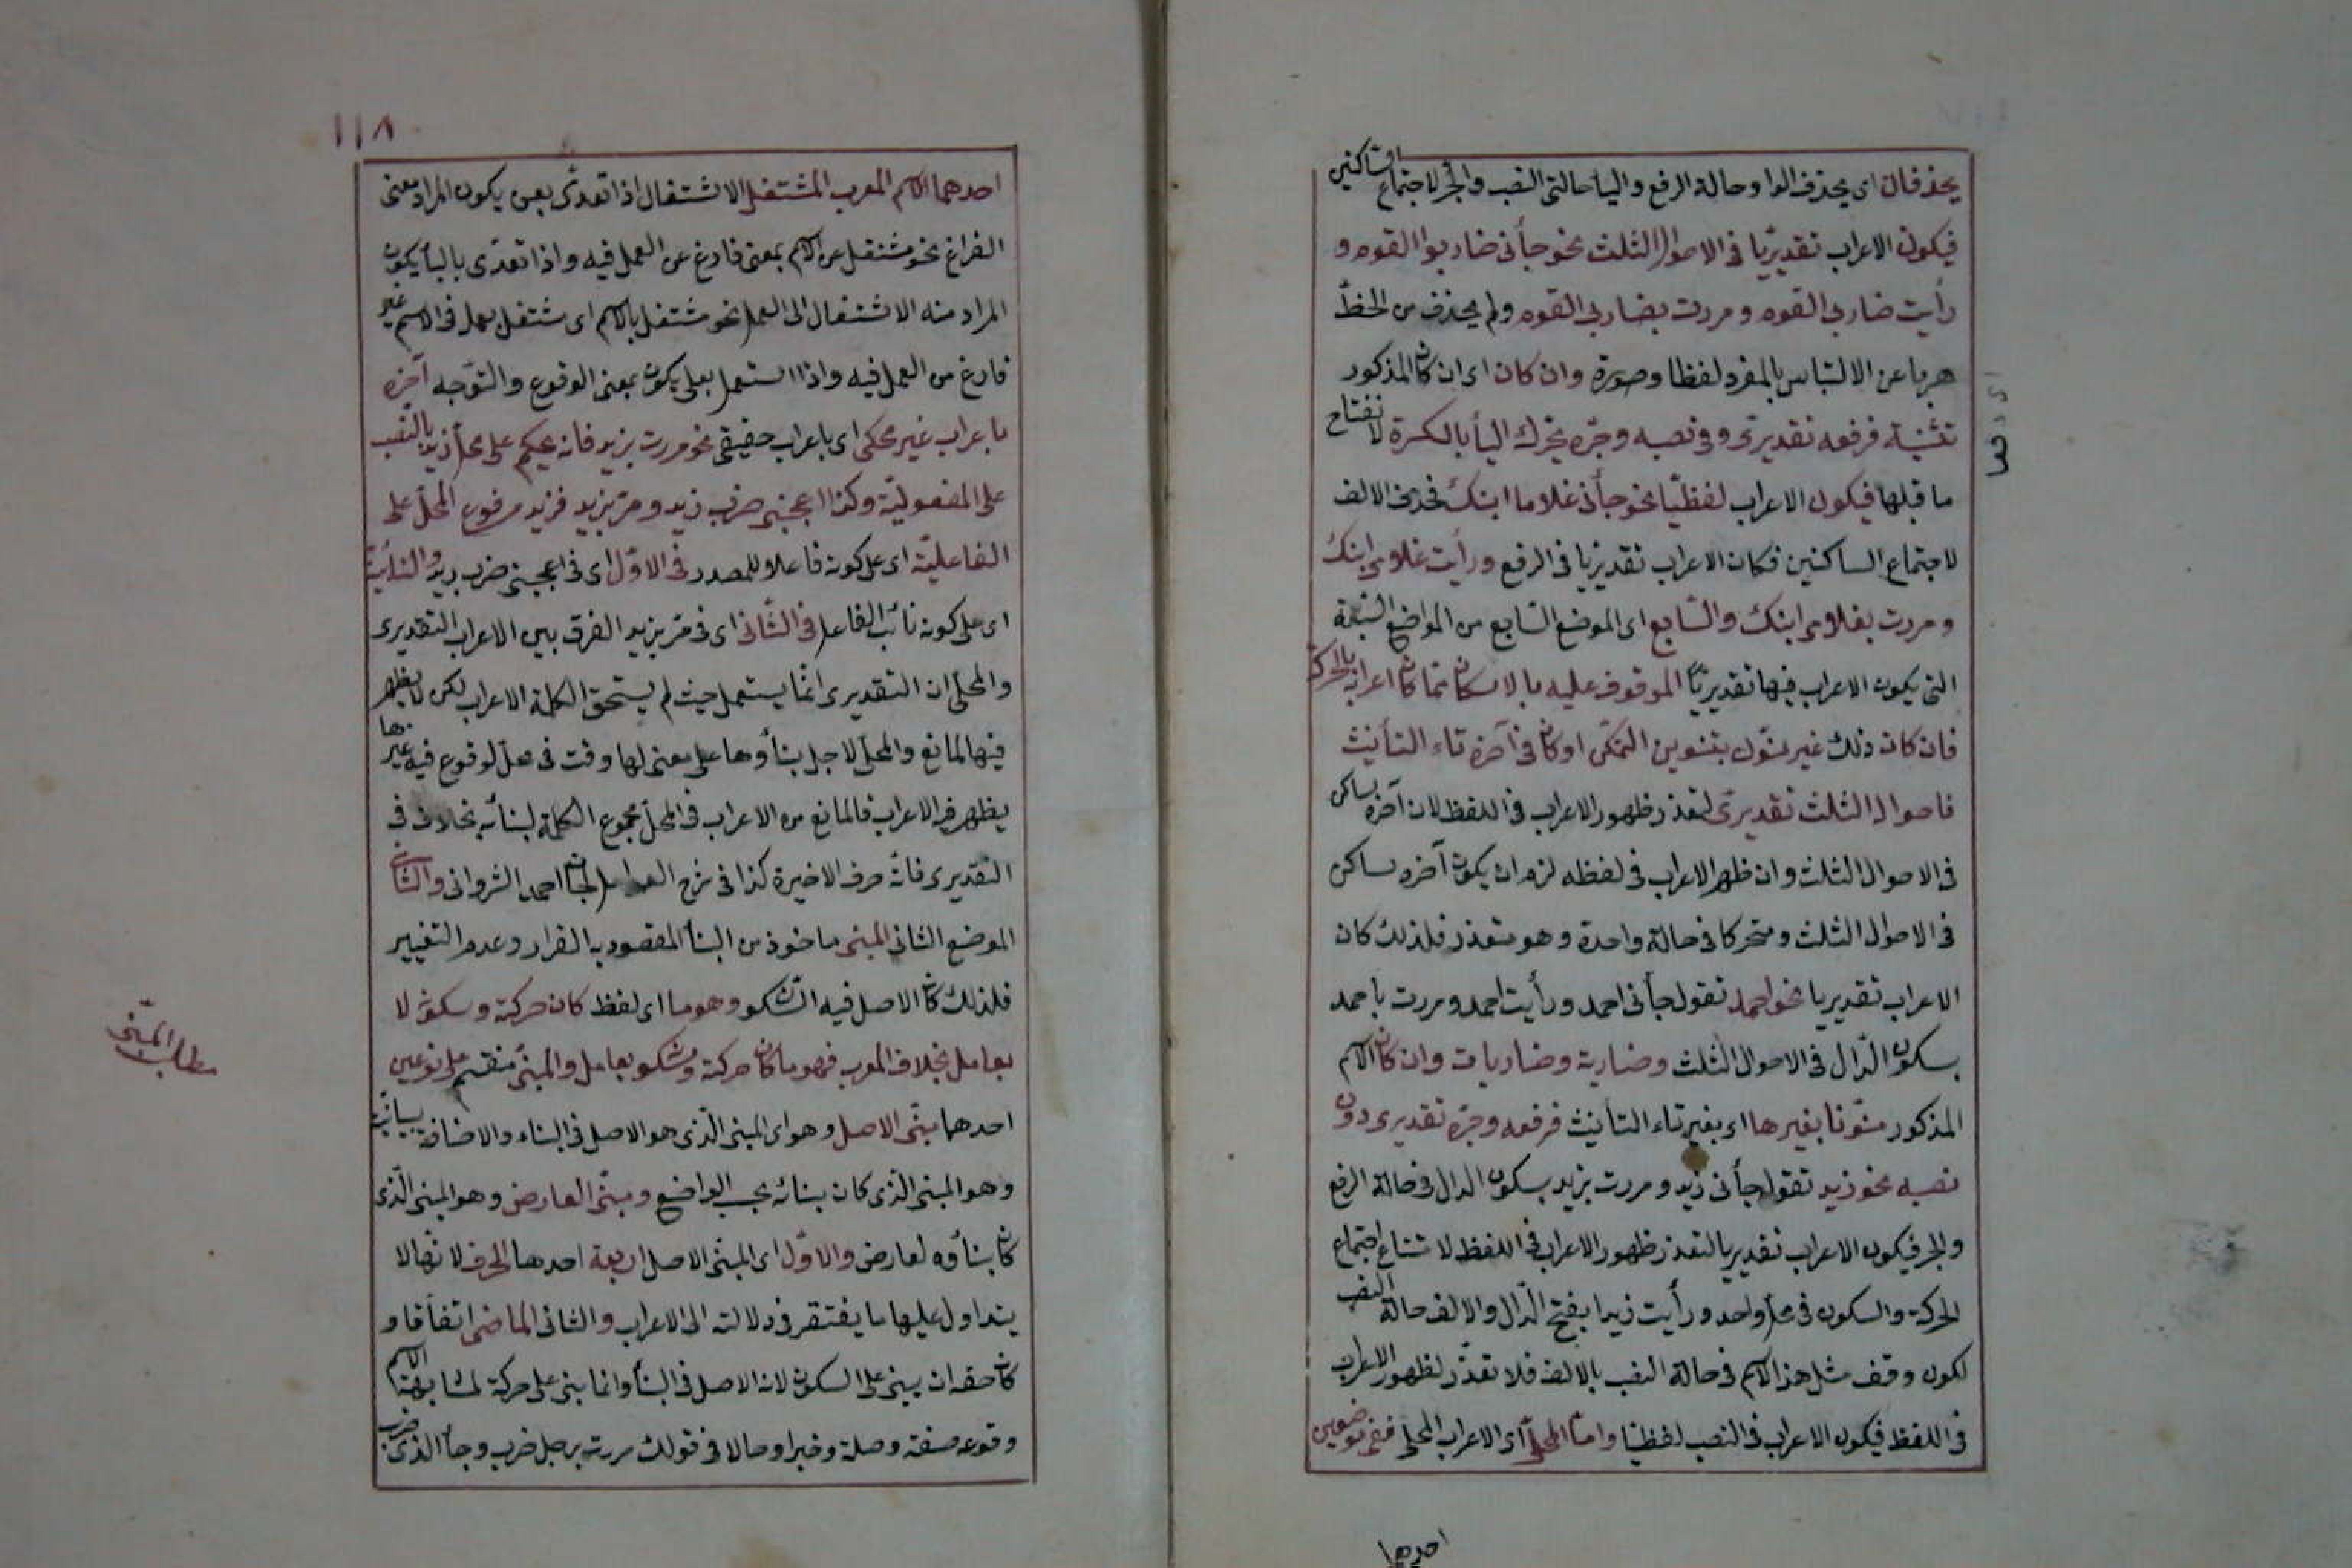 يحذفان اى يحذف الواو حالة الرفع واليا حالتى النصب والجر لاجتماع الساكنين
فيكون الاعراب تقديريّا فى الاحوال الثلث نحو جأنى ضاربوا القوم و
رأيت ضاربى القوم ومررت بضاربى القوم ولم يحذف من الخطّ
هربا عن الالتباس بالمفرد لفظا وصورة وان كان اى ان كان المذكور
تثنية فرفعه تقديرى وفى نصبه وجرّه يحرك اليأ بالكسرة لانفتاح
ما قبلها فيكون الاعراب لفظيّا نحو جأنى غلاما ابنك فحذف الالف
لاجتماع الساكنين فكان الاعراب تقديريا فى الرفع ورأيت غلامى ابنك
ومررت بغلامى ابنك والسّابع اى الموضع السّابع من المواضع السّبعة
التى يكون الاعراب فيها تقديريّا الموقوف عليه بالاسكان مما كان اعرابه بالحركة
فان كان ذلك غير منوّن بتنوين التمكّن او كان فى آخره تاء التأنيث
فاحواله الثلث تقديرىّ لتعذر ظهور الاعراب فى اللفظ لان آخره ساكن
فى الاحوال الثلث وان ظهر الاعراب فى لفظه لزم ان يكون آخره ساكن
فى الاحوال الثلث ومتحركا فى حالة واحدة وهو متعذر فلذلك كان
الاعراب تقديريا نحو احمد تقول جأنى احمد ورأيت احمد ومررت باحمد
بسكون الدّال فى الاحوال الثلث وضاربة وضاربات وان كان الاسم
المذكور منوّنا بغيرها اى بغير تاء التأنيث فرفعه وجرّه تقديرى دون
نصبه نحو زيد تقول جأنى زيد ومررت بزيد بسكون الدال فى حالة الرفع
والجر فيكون الاعراب تقديريا لتعذر ظهور الاعراب فى اللفظ لامتناع اجتماع
الحركة والسكون فى محل واحد ورأيت زيدا بفتح الدّال والالف حالة النصب
لكون وقف مثل هذا الاسم فى حالة النصب بالالف فلا تعذّر لظهور الاعراب
فى اللفظ فيكون الاعراب فى النصب لفظيّا وامّا المحلّى اى الاعراب المحلى ففى موضعين
احدهما
١١٨
احدهما الاسم المعرب المشتغل الاشتغال اذا تعدّى بعن يكون المراد معنى
الفراغ نحو مشتغل عن الاسم بمعنى فارغ عن العمل فيه واذا تعدّى باليأ يكون
المراد منه الاشتغال الى العمل نحو مشتغل بالاسم اى مشتغل بعمل فى الاسم غير
فارغ من العمل فيه واذا استعمل بعلى يكون بمعنى الوقوع والتوجه آخره
باعراب غير محكى اى باعراب حقيقى نحو مررت بزيد فانه يحكم على محل زيد بالنّصب
على المفعوليّة وكذا اعجبنى ضرب زيد ومرّ بزيد فزيد مرفوع المحلّ على
الفاعليّة اى على كونه فاعلا للمصدر فى الاوّل اى فى اعجبنى ضرب زيد والنائبية
اى على كونه نائب الفاعل فى الثّانى اى فى مرّ بزيد الفرق بين الاعراب التقديرى
والمحلى ان التقديرى انّما يستعمل حيث لم يستحق الكلمة الاعراب لكن لا يظهر
فيها لمانع والمحلى لاجل بنأوها على معنى لها وقت فى محل لوقوع فيه غيرها
يظهر فيه الاعراب فالمانع من الاعراب فى المحلّى مجموع الكلمة لبنائه بخلافه فى
التقديرى فانّه حرف الاخيرة كذا فى شرح العوامل احمد الشروانى والثانى
الموضع الثانى المبنى مأخوذ من البنأ المقصود به القرار وعدم التغيير
فلذلك كان الاصل فيه السّكون وهو ما اى لفظ كان حركته وسكونه لا
بعامل بخلاف المعرب فهو ما كان حركته وسكونه بعامل والمبنىّ منقسم على نوعين
احدهما مبنّى الاصل وهو اى المبنى الّذى هو الاصل فى البناء والاضافة بيانيّة
وهو المبنى الذى كان بنائه بحسب الواضع ومبنّى العارض وهو المبنى الّذى
كان بنأؤه لعارض والاوّل اى المبنّى الاصل اربعة احدها الحرف لانّها لا
يتداول عليها ما يفتقر فى دلالته الى الاعراب والثانى الماضى اتفاقا و
كان حقه ان يبنى على السكون لانه الاصل فى البنأ وانما بنى على حركة لمشابهة الاسم
وقوعه صفة وصلة وخبرا وحالا فى قولك مررت برجل ضرب وجأ الذى ضرب
مطلب المبنى